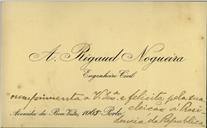 A. Rigaud Nogueira
Engenheiro Civil
cumprimenta a V. Exª e felicita pela sua
eleição á Presi
Avenida da Boa Vista, 1068 - Porto
dencia da Republica